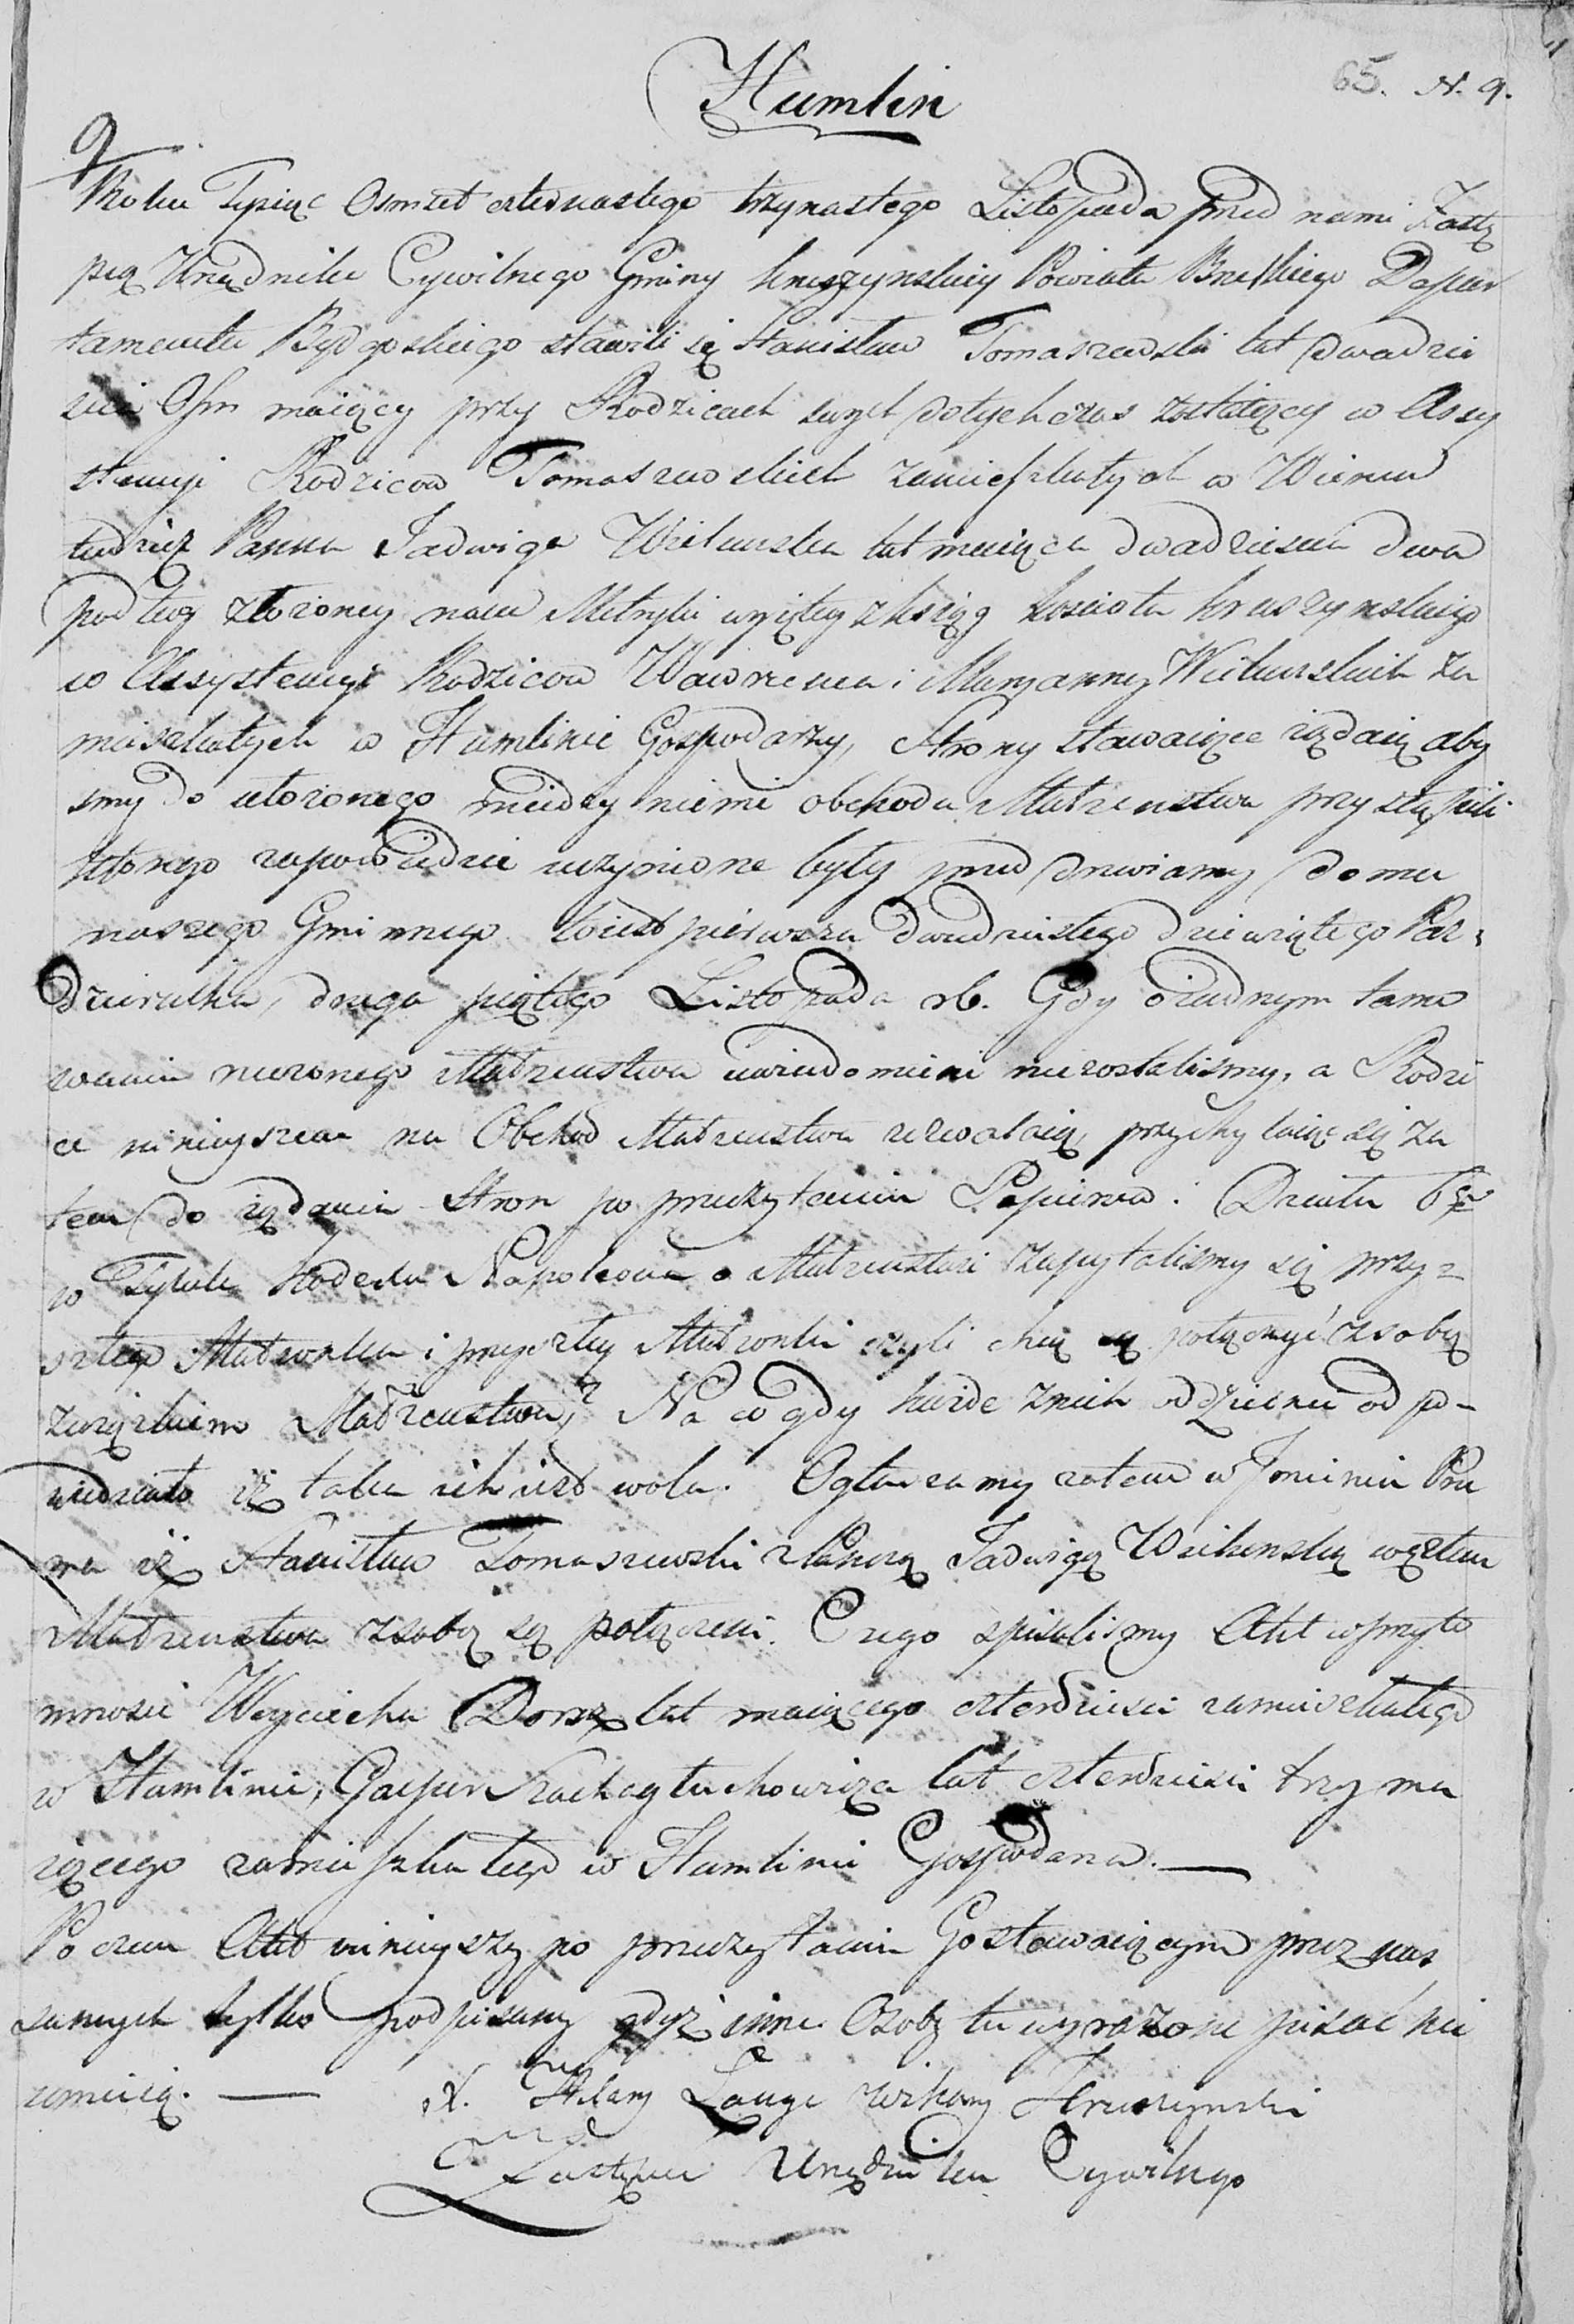 Humlin
65. N. 9.
9
Roku Tysiąc Osmset czternastego trzynastego Listopada przed nami Zastę
pcą Urzędnika Cywilnego Gminy kruszynskiey Powiatu Brzeskiego Depar
tamentu Bydgoskiego stawili się Stanisław Tomaszewski lat dwadzie
scia Osm maiący przy Rodzicach swych dotychczas zostaiący w Assy
stencyi Rodzicow Tomaszewskich zamieszkałych w
tudziez Panna Jadwiga lat maiąca dwadziescia dwa
podług złożoney nam Metryki wyiętey z ksiąg koscioła kruszynskiego
w Assystencyi Rodziców Wawrzenca i Maryanny za
mieszkałych w Humlinie Gospodarzy, Strony stawaiące żądaią aby
smy do ułożonego miedzy niemi obchodu Małzenstwa przystąpili
ktorego zapowiedzie uczynione były przed drzwiamy domu
naszego Gminnego toiest pierwsza dwudziestego dziewiątego Paz-
dziernika, druga piątego Listopada rb. Gdy o żadnym tamo
waniu rzeczonego Małzenstwa uwiadomieni niezostalismy, a Rodzi
ce ninieyszem na Obchod Małzenstwa zezwalaią, przychylaiąc się za
tem do żądania Stron po przeczytaniu Papierow i Działu 6go
w Tytule Kodexu Napoleona o Małzenstwie zapytalismy się przy-
szłego Małzonka i przyszłey Małzonki czyli chcą się połączyć z sobą
związkiem Małzenstwa? Na co gdy każde z nich oddzielnie odpo-
wiedziało iż taka ich iest wola. Ogłaszamy zatem w Jmieniu Pra
wa iż Stanisław Tomaszewski z Panną Jadwigą węzłem
Małzenstwa z sobą są połączeni. Czego spisalismy Akt w przyto
mnosci Woyciecha lat maiącego czterdziesci zamieszkałego
w Humlinie, Gaspra lat czterdziesci trzy ma
iącego zamieszkałego w Humlinie Gospodarza.
Poczem Akt ninieyszy po przeczytaniu Go stawaiącym przez nas
samych tylko podpisany gdyż inne Osoby tu wyrażone pisać nie
umieią.
X. Hilary Lange wikary Kruszynski
Zastępca Urzędnika Cywilnego